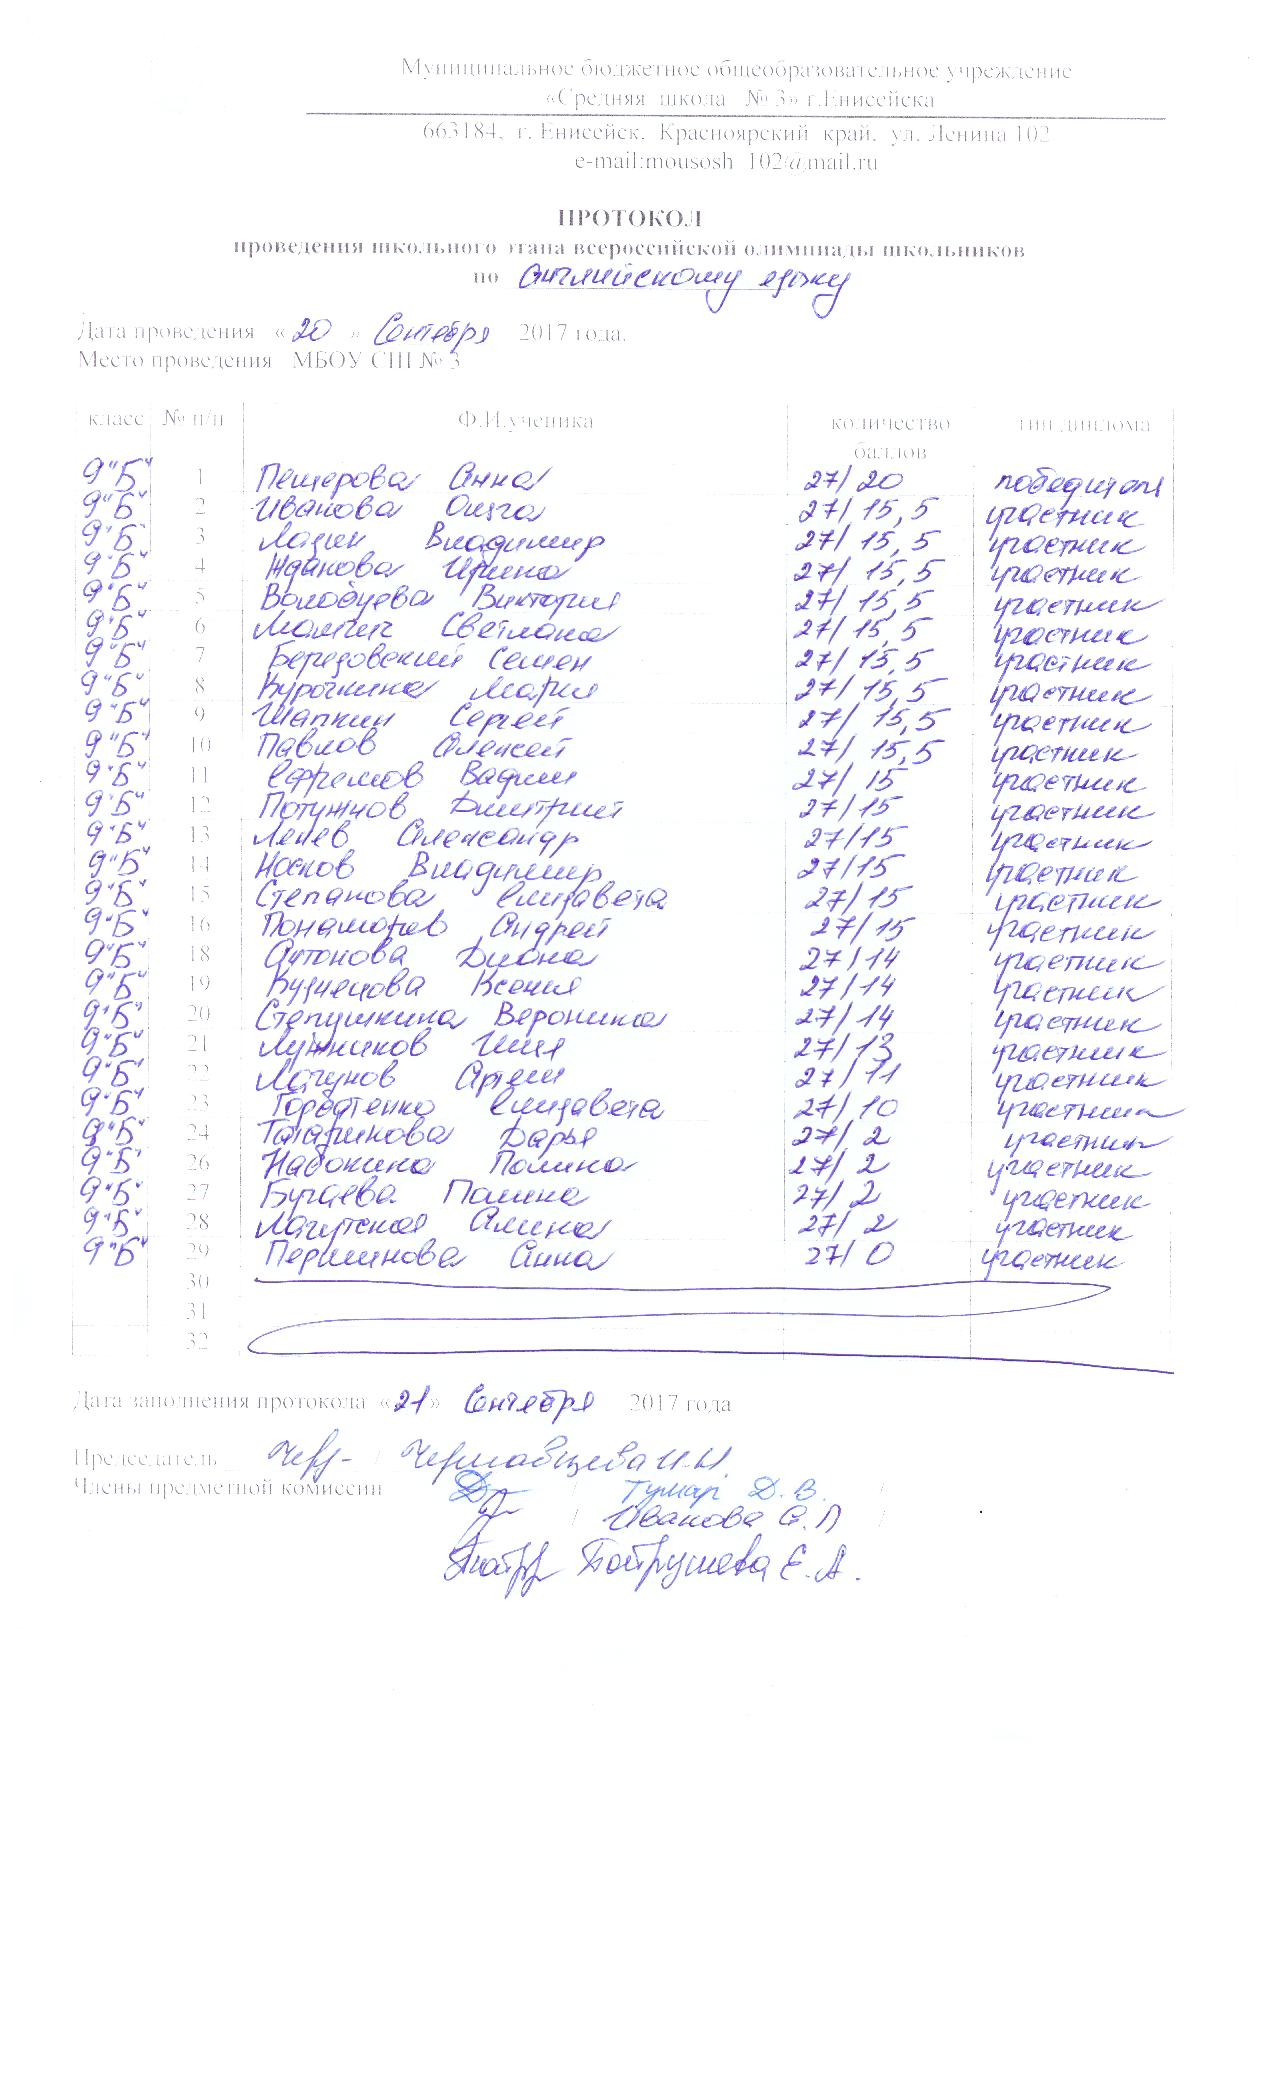 Муниципальное бюджетное общеобразовательное учреждение
«Средняя школа № 3» г.Енисейска
663184, г. Енисейск, Красноярский край, ул. Ленина 102
e-mail:mousosh 102@mail.ru
ПРОТОКОЛ
проведения школьного этапа всероссийской олимпиады школьников
по Английскому языку
Дата проведения «20» Сентября 2017 года.
Место проведения МБОУ СШ № 3
класс № п/п Ф.И.ученика количество баллов тип диплома
9"Б" 1 Пещерова Анна 27/20 победитель
9"Б" 2 Иванова Ольга 27/15,5 участник
9"Б" 3 Лазин Владимир 27/15,5 участник
9"Б" 4 Жданова Ирина 27/15,5 участник
9"Б" 5 Володуева Виктория 27/15,5 участник
9"Б" 6 Светлана 27/15,5 участник
9"Б" 7 Березовский Семен 27/15,5 участник
9"Б" 8 Курочкина Мария 27/15,5 участник
9"Б" 9 Шапкин Сергей 27/15,5 участник
9"Б" 10 Павлов Алексей 27/15,5 участник
9"Б" 11 Ефремов Вадим 27/15 участник
9"Б" 12 Дмитрий 27/15 участник
9"Б" 13 Александр 27/15 участник
9"Б" 14 Носков Владимир 27/15 участник
9"Б" 15 Степанова Елизавета 27/15 участник
9"Б" 16 Понаморев Андрей 27/15 участник
9"Б" 18 Антонова Диана 27/14 участник
9"Б" 19 Кузнецова Ксения 27/14 участник
9"Б" 20 Степушкина Вероника 27/14 участник
9"Б" 21 Лужников Илья 27/13 участник
9"Б" 22 Лагунов Артем 27/11 участник
9"Б" 23 Елизавета 27/10 участник
9"Б" 24 Татаринова Дарья 27/2 участник
9"Б" 26 Набокина Полина 27/2 участник
9"Б" 27 Бугаева Полина 27/2 участник
9"Б" 28 Алина 27/2 участник
9"Б" 29 Першинова Анна 27/0 участник
30
31
32
Дата заполнения протокола «21» Сентября 2017 года
Председатель / Чермавцева И.Н.
Члены предметной комиссии / Тумар Д. В. /
/ Иванова О.П /
Е. А.